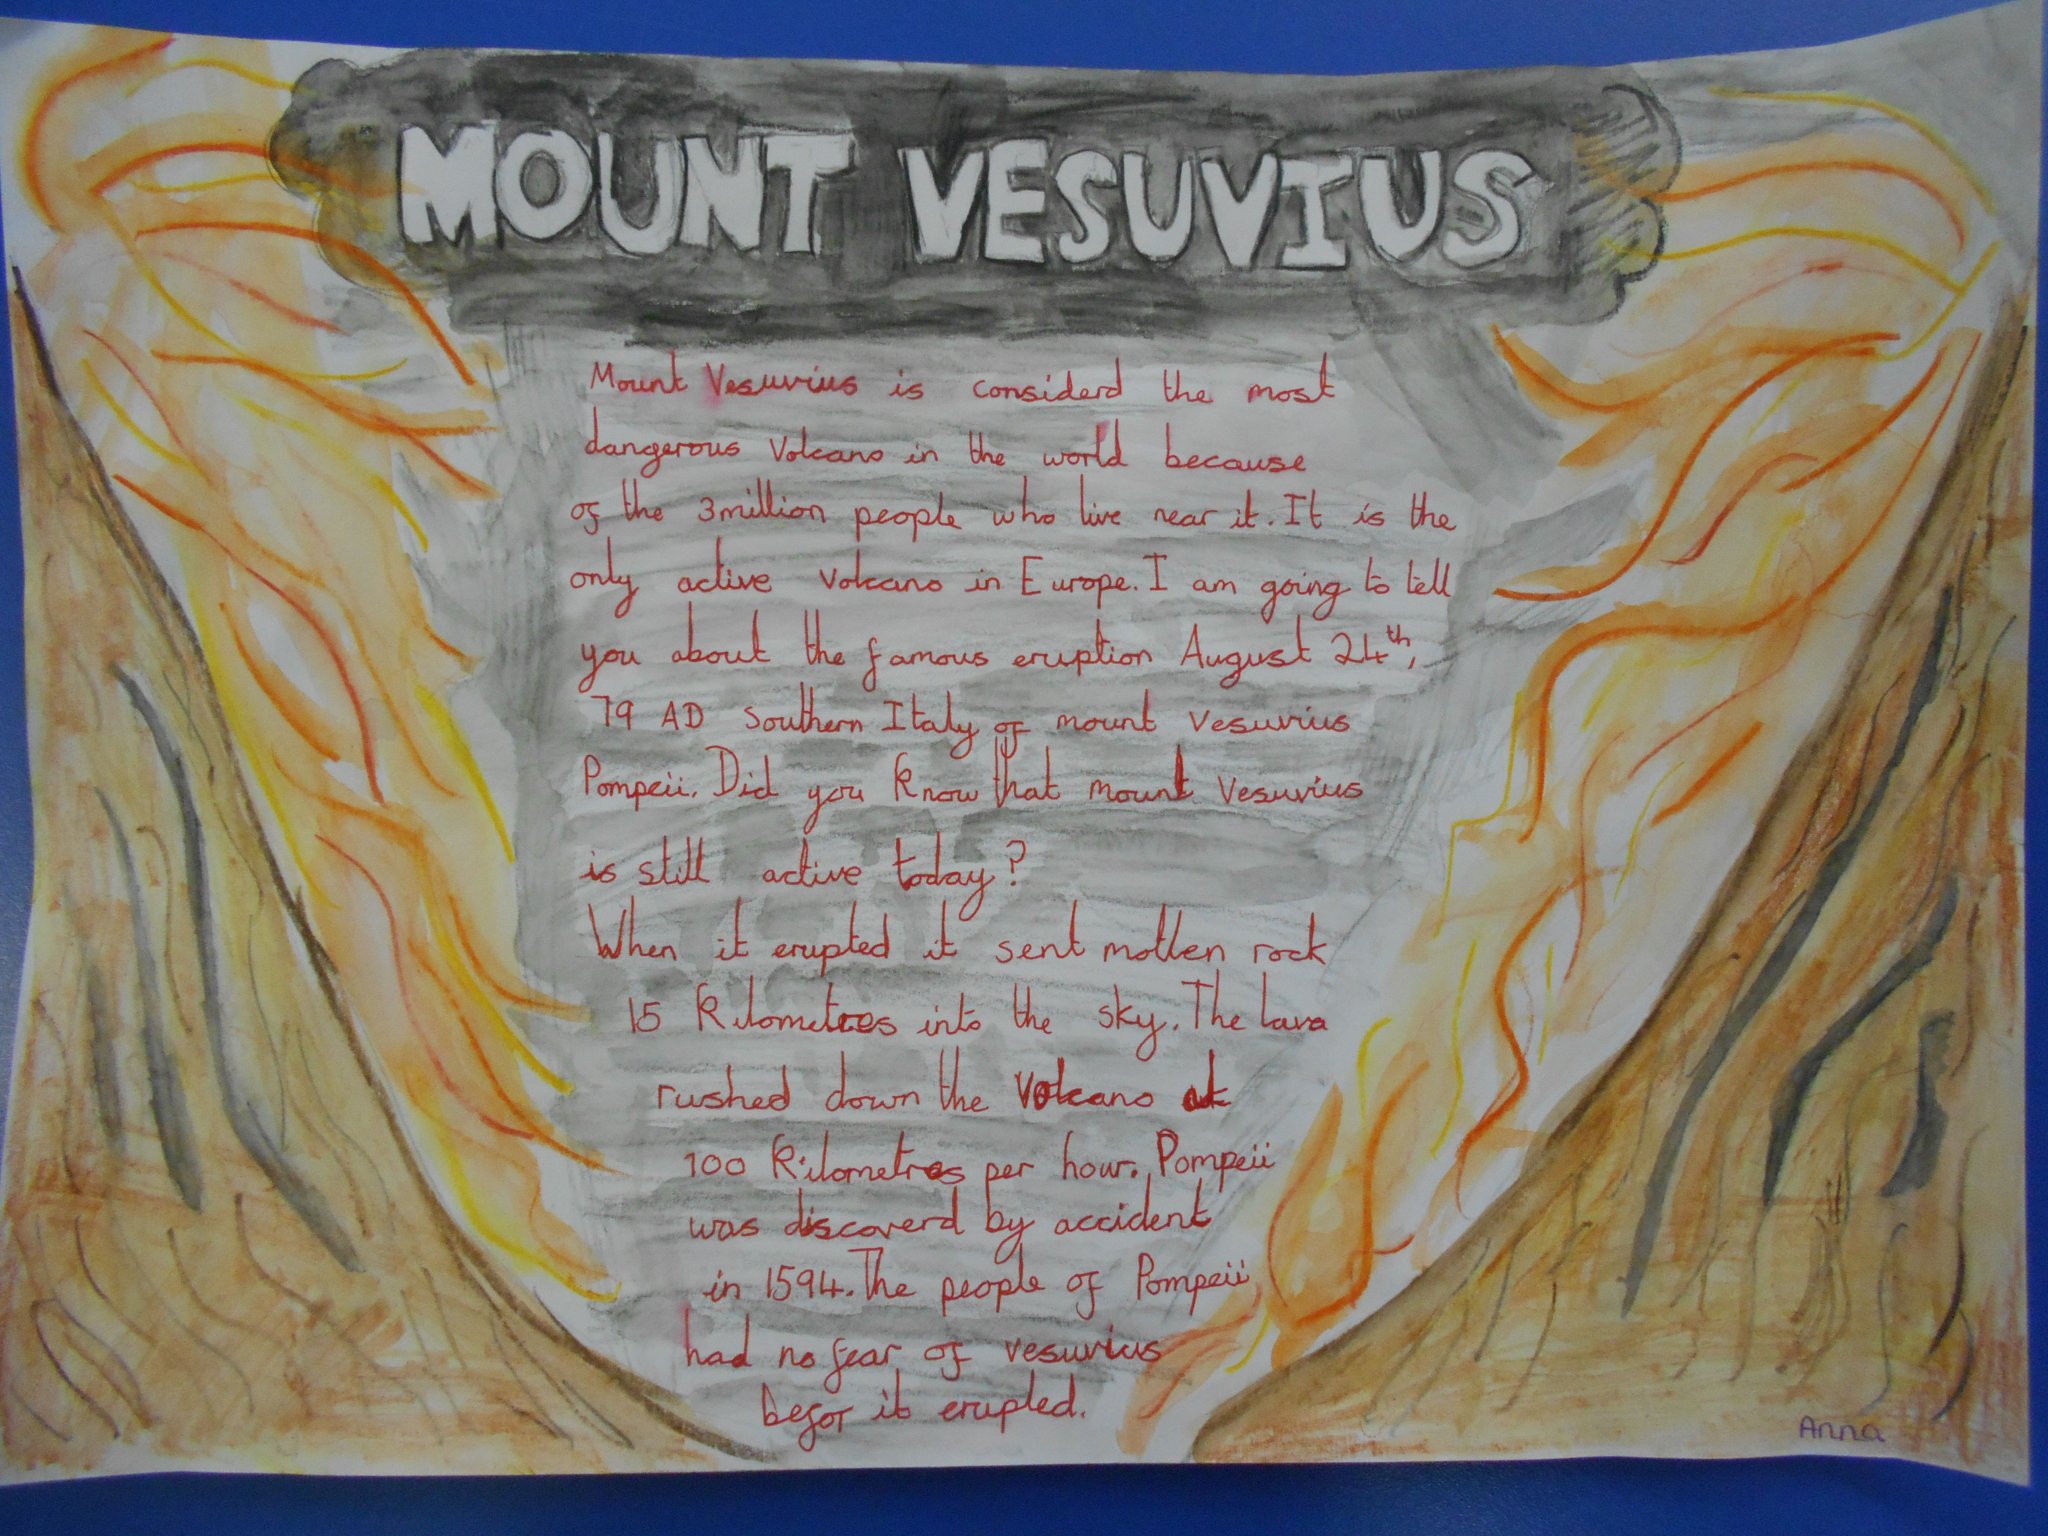 MOUNT VESUVIUS
Mount Vesuvius is considerd the most
dangerous Volcano in the world because
of the 3million people who live near it. It is the
only active Volcano in Europe. I am going to tell
you about the famous eruption August 24th,
79 AD Southern Italy of mount Vesuvius
Pompeii. Did you know that mount Vesuvius
is still active today?
When it erupted it sent molten rock
15 Kilometres into the sky. The lava
rushed down the Volcano at
100 Kilometres per hour. Pompeii
was discoverd by accident
in 1594. The people of Pompeii
had no fear of vesuvius
befor it erupted.
Anna